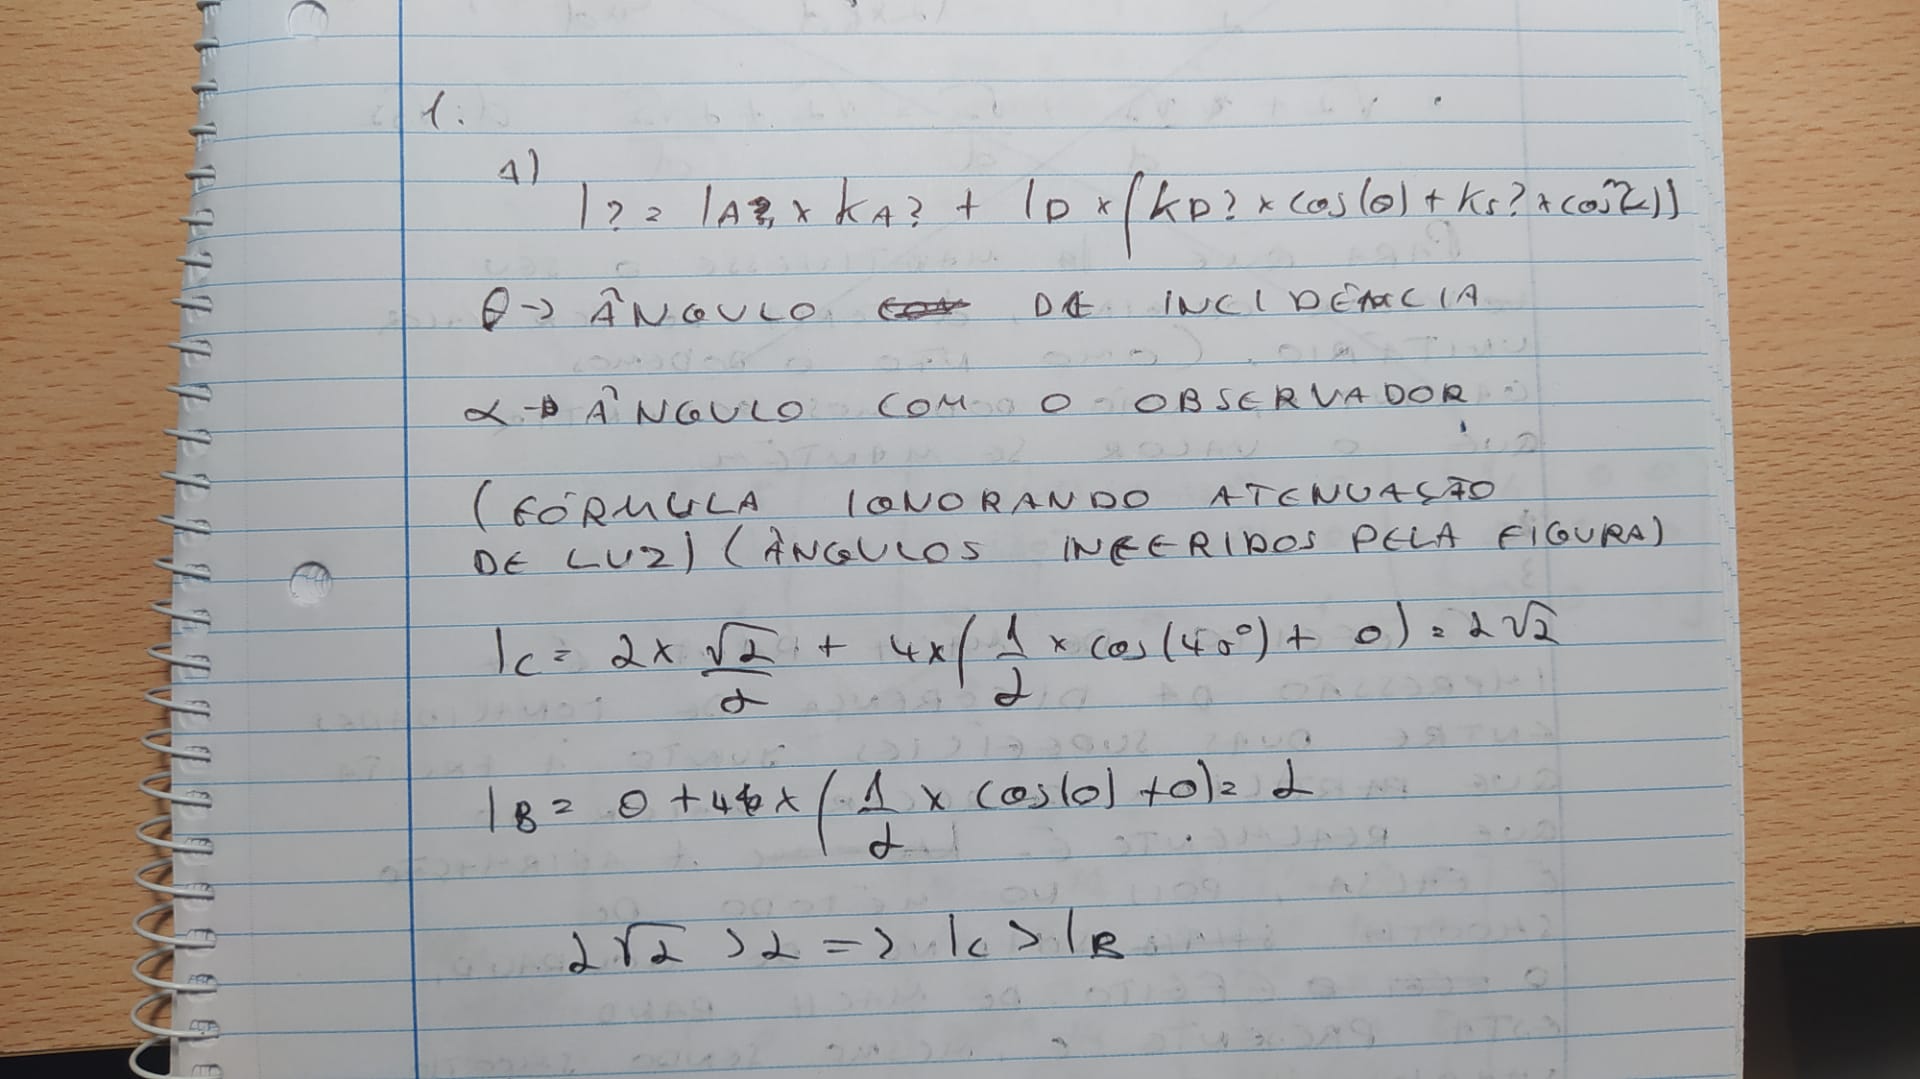 1.
A)
I? = IA? × KA? + ID × (KD? × cos(θ) + KS? × cosⁿ(α))
θ → ÂNGULO DE INCIDÊNCIA
α → ÂNGULO COM O OBSERVADOR
(FÓRMULA IGNORANDO ATENUAÇÃO
DE LUZ) (ÂNGULOS INFERIDOS PELA FIGURA)
IC = 2 × √2/2 + 4 × (1/2 × cos(45°) + 0) = 2√2
IB = 0 + 4 × (1/2 × cos(0) + 0) = 2
2√2 > 2 => IC > IB